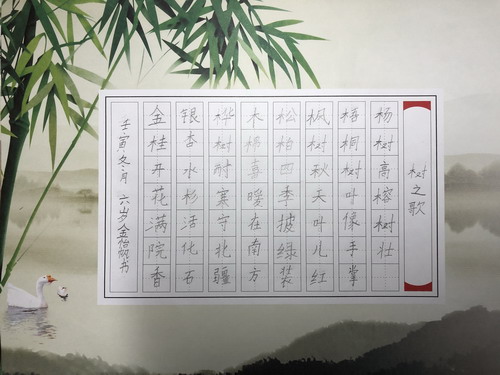 树之歌
杨树高榕树壮
梧桐树叶像手掌
枫树秋天叶儿红
松柏四季披绿装
木棉喜暖在南方
桦树耐寒守北疆
银杏水杉活化石
金桂开花满院香
壬寅冬月 六岁金怡帆书